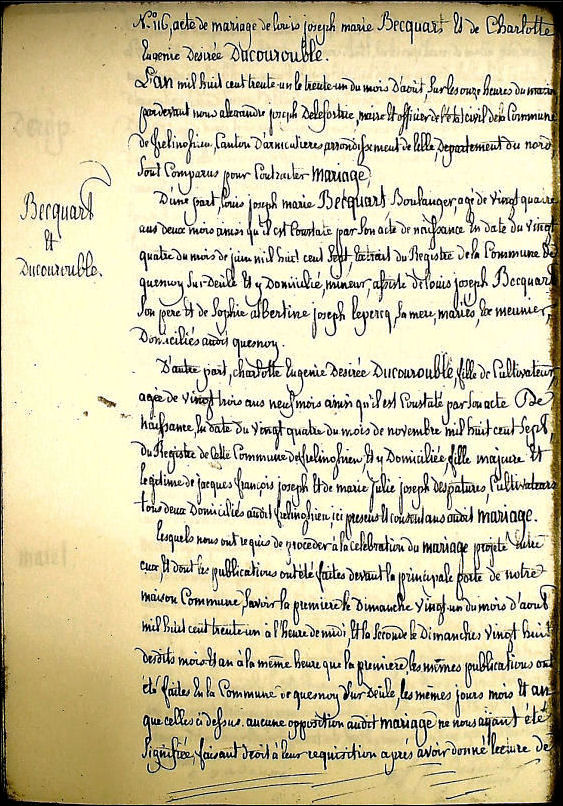 N.º 116, acte de mariage de louis joseph marie Becquart Et de Charlotte
Eugenie Desirée Ducourouble.
L'an mil huit cent trente-un le trente-un du mois d'août, sur les onze heures du matin
pardevant nous alexandre joseph Delefortrie, maire Et officier de l'état civil de la Commune
de frelinghien, Canton d'armentieres arrondissement de lille, Departement du nord
sont Comparus pour Contracter mariage,
D'une part, louis joseph marie Becquart Boulanger, agé de vingt quatre
ans deux mois ainsi qu'il est Constaté par son acte de naissance En date du vingt
quatre du mois de juin mil huit cent sept, Extrait du Registre de la Commune de
quesnoy Sur-Deûle Et y Domicilié, mineur, assisté de louis joseph Becquart
son pere Et de Sophie albertine joseph lepercq, sa mere, mariés, meunier,
Domiciliés audit quesnoy.
D'autre part, charlotte Eugenie Desirée Ducourouble, fille de Cultivateur,
agée de vingt trois ans neuf mois ainsi qu'il est Constaté par son acte De
naissance, En date du vingt quatre du mois de novembre mil huit cent sept,
du Registre de Cette Commune de frelinghien, Et y Domiciliée, fille majeure Et
legitime de jacques françois joseph Et de marie Julie joseph despatures, Cultivateurs
tous deux Domiciliés audit frelinghien, ici presens Et consentans audit mariage.
lesquels nous ont requis de proceder à la celebration du mariage projeté Entre
eux, Et dont les publications ont été faites devant la principale porte de notre
maison Commune, Savoir la premiere le Dimanche vingt-un du mois d'aout
mil huit cent trente-un à l'heure de midi, Et la seconde le Dimanches vingt huit
desdits mois Et an à la même heure que la premiere, les mêmes publications ont
été faites En la Commune de quesnoy Sur Deûle, les mêmes jours mois Et an
que celles ci dessus. aucune opposition audit mariage ne nous ayant été
Signifiée, faisant droit à leur requisition après avoir donné lecture de
Becquart
Et
Ducourouble.